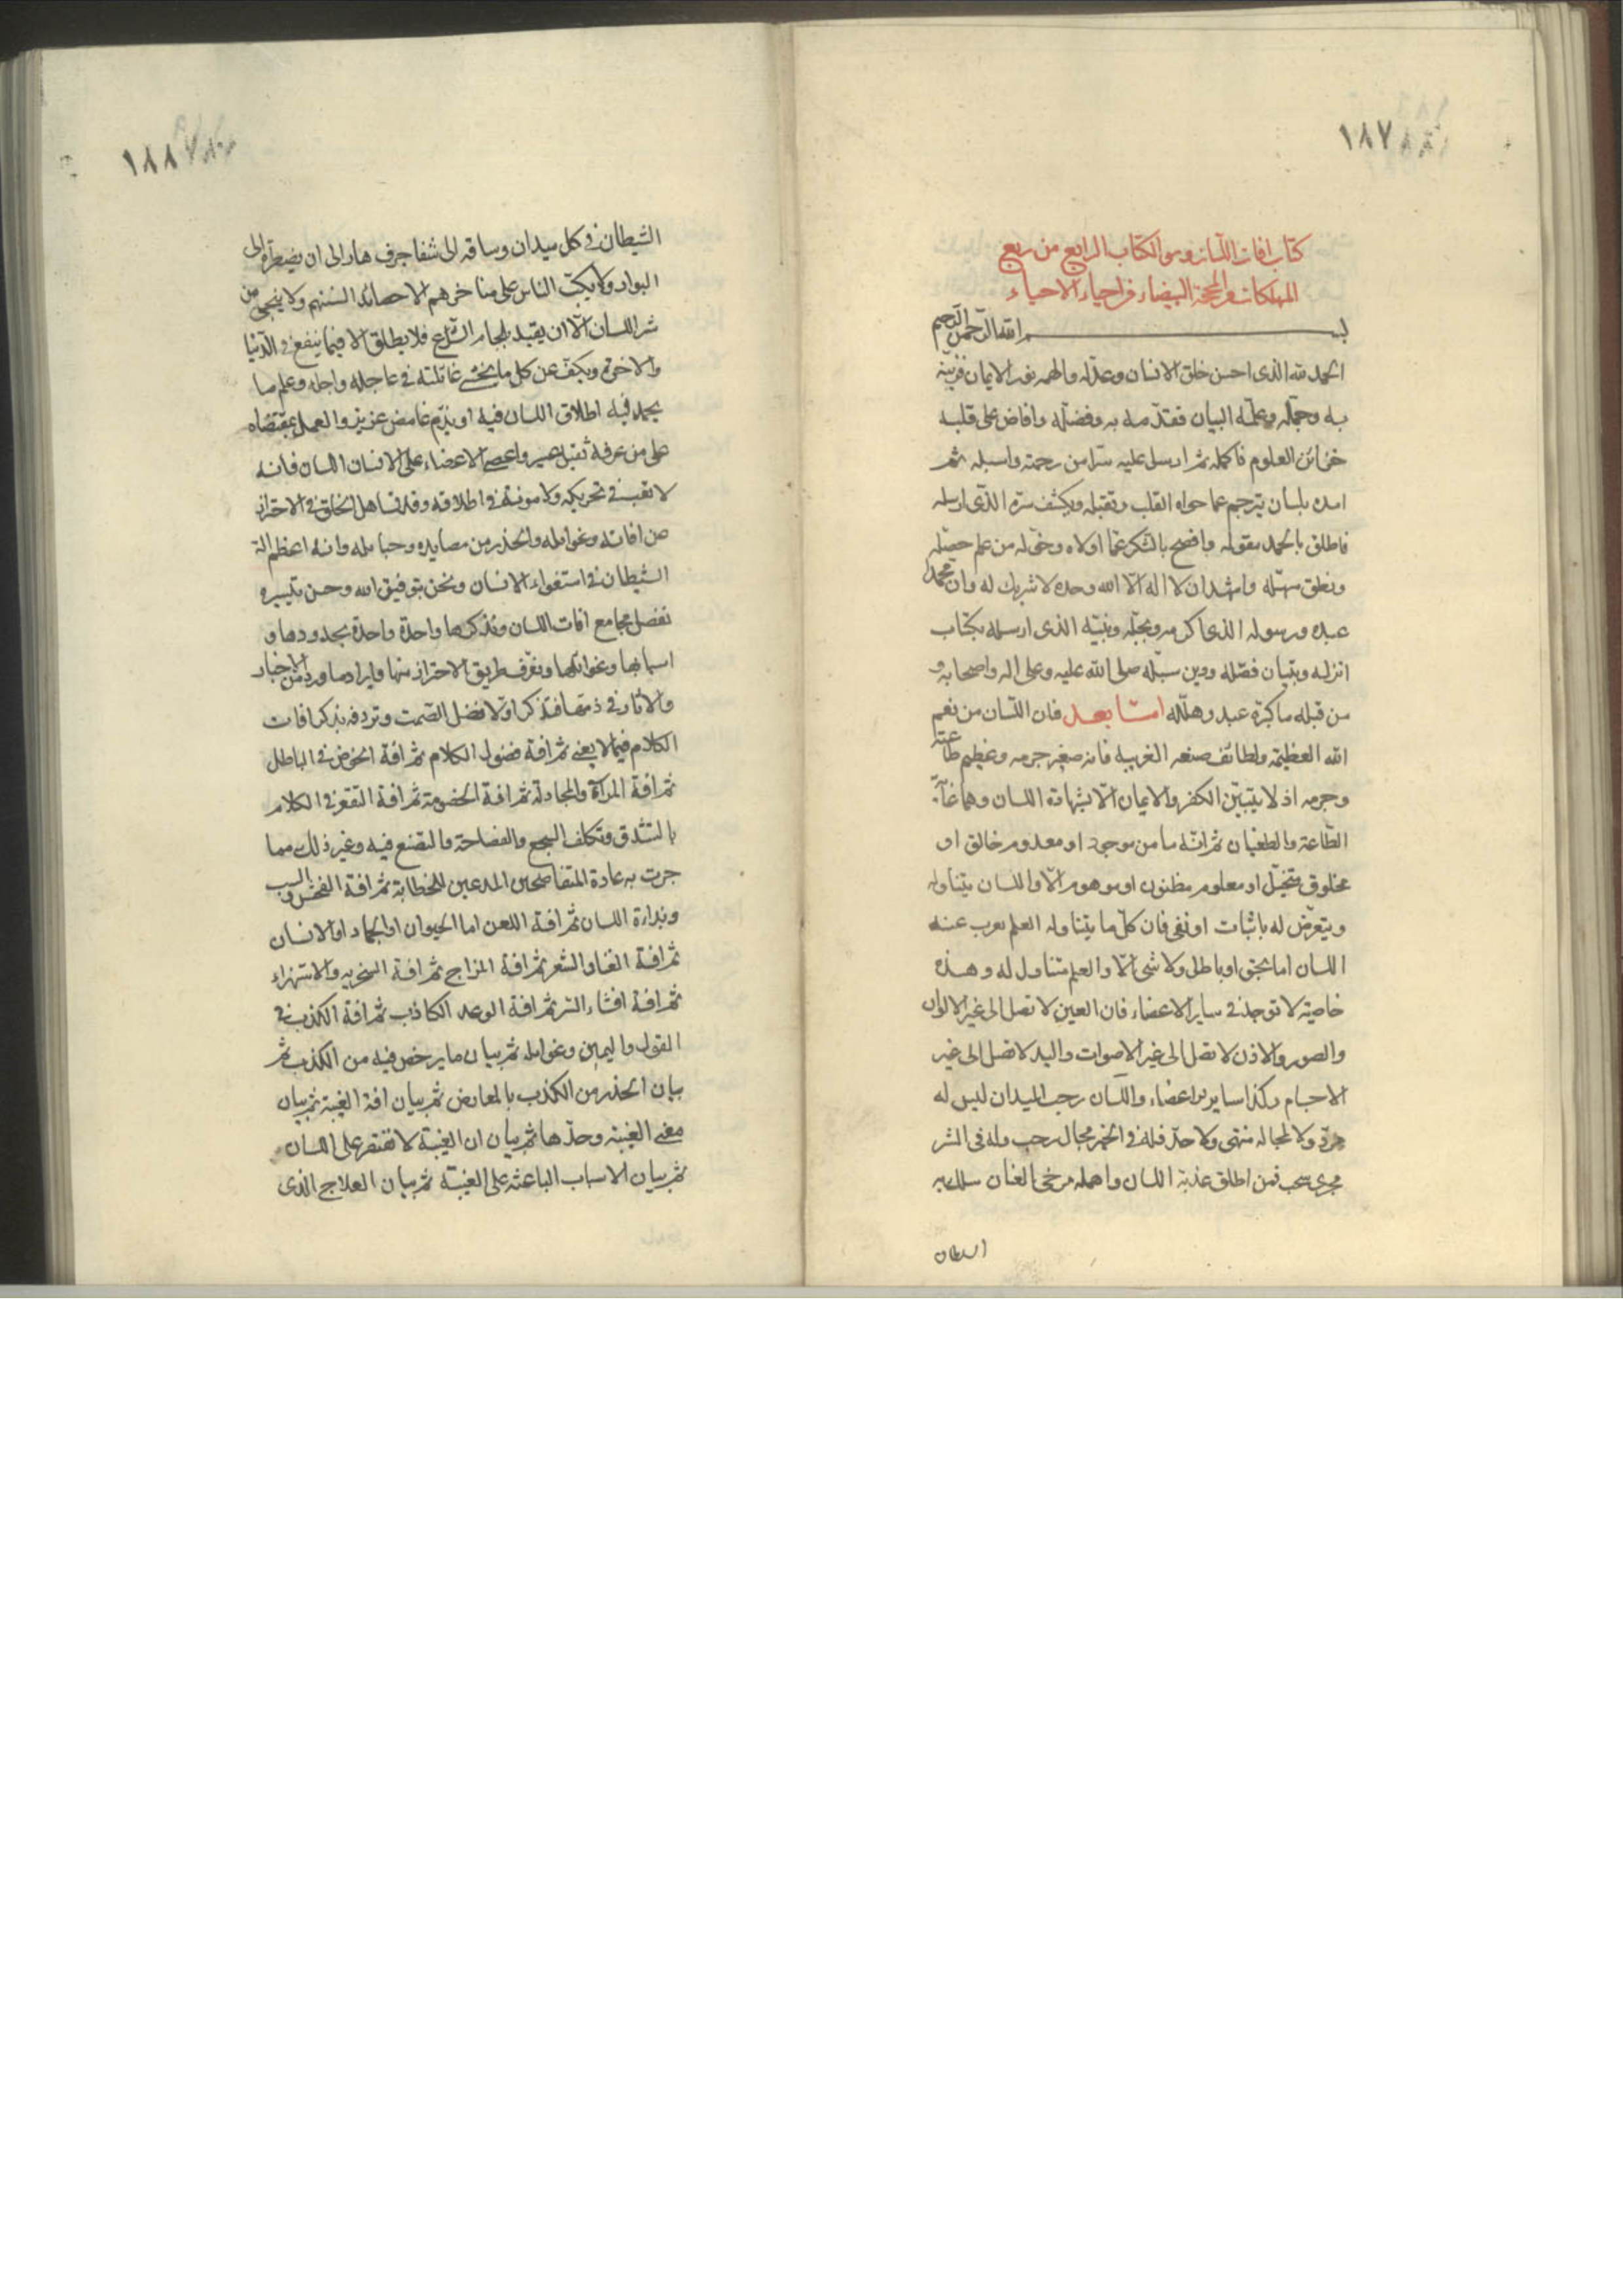 ١٨٧
كتاب افات اللسان وهو الكتاب الرابع من ربع
المهلكات من المحجة البيضاء فى احياء الاحياء
بسم الله الرحمن الرحيم
الحمد لله الذى احسن خلق الانسان وعدّله والهمه نور الايمان فزيّنه
به وجمّله وعلّمه البيان فقدّمه به وفضّله وافاض على قلبه
خزائن العلوم فاكمله ثم ارسل عليه سترا من رحمته واسبله ثم
امده بلسان يترجم عما حواه القلب وتقبله ويكشف ستره الذى ارسله
فاطلق بالحمد مقوله وافصح بالشكر عمّا اولاه وخوّله من علم حصّله
ونطق سهّله واشهد ان لا اله الّا الله وحده لا شريك له وان محمدا
عبده ورسوله الذى اكرمه وبجّله ونبيّه الذى ارسله بكتاب
انزله وبتيان فصّله ودين سبّله صلى الله عليه وعلى اله واصحابه و
من قبله ما كبّره عبد وهلّله امّا بعد فان اللّسان من نعم
الله العظيمة ولطائف صنعه الغريبه فانه صغير جرمه وعظيم طاعته
وجرمه اذ لا يتبيّن الكفر والايمان الّا بشهادة اللسان وهما غاية
الطّاعة والطغيان ثم انّه ما من موجود او معدوم خالق او
مخلوق متخيّل او معلوم مظنون او موهوم الّا واللسان يتناوله
ويتعرّض له باثبات او نفى فان كلّ ما يتناوله العلم يعرب عنه
اللسان اما بحق او باطل ولا شى الّا والعلم متناول له وهذه
خاصية لا توجد فى ساير الاعضاء فان العين لا تصل الى غير الالوان
والصور والاذن لا تصل الى غير الاصوات واليد لا تصل الى غير
الاجسام وكذا ساير الاعضاء واللسان رحب الميدان ليس له
مردّ ولا لمجاله منتهى ولا حدّ فله فى الخير مجال رحب وله فى الشر
مجرى سحب فمن اطلق عذبة اللسان واهمله مرخى العنان سلك به
الشيطان
١٨٨
الشيطان فى كل ميدان وساقه الى شفا جرف هار الى ان يضطره الى
البوار ولا يكبّ الناس على مناخرهم الا حصائد السنتهم ولا ينجى من
شر اللسان الّا ان يقيد بلجام الشرع فلا يطلق الا فيما ينفع فى الدّنيا
والاخرة ويكفّ عن كل ما يخشى غائلته فى عاجله واجله وعلم ما
يحمد فيه اطلاق اللسان فيه او يذم غامض عزيز والعمل بمقتضاه
على من عرفه ثقيل عسير واعصى الاعضاء على الانسان اللسان فانه
لا تعب فى تحريكه ولا مونة فى اطلاقه وقد تساهل الخلق فى الاحتراز
من افاته وغوائله والحذر من مصايده وحبائله وانه اعظم الة
الشيطان فى استغواء الانسان ونحن بتوفيق الله وحسن تيسيره
نفصل مجامع افات اللسان ونذكرها واحدة واحدة بحدودها و
اسبابها وغوائلها ونعرّف طريق الاحتراز منها وايراد ما ورد من الاخبار
والاثار فى ذمها فنذكر اوّلا فضل الصّمت ونردفه بذكر افات
الكلام فيما لا يعنى ثم افة فضول الكلام ثم افة الخوض فى الباطل
ثم افة المراء والمجادلة ثم افة الخصومة ثم افة التقعر فى الكلام
بالتشدق وتكلف السجع والفصاحة والتصنع فيه وغير ذلك مما
جرت به عادة المتفاصحين المدعين للخطابة ثم افة الفحش والسب
وبذاءة اللسان ثم افة اللعن اما الحيوان او الجماد او الانسان
ثم افة الغنا والشعر ثم افة المزاح ثم افة السخريه والاستهزاء
ثم افة افشاء السر ثم افة الوعد الكاذب ثم افة الكذب فى
القول واليمين وغوائله ثم بيان ما يرخص فيه من الكذب ثم
بيان الحذر من الكذب بالمعاريض ثم بيان افة الغيبة ثم بيان
معنى الغيبة وحدّها ثم بيان ان الغيبة لا تقتصر على اللسان
ثم بيان الاسباب الباعثه على الغيبة ثم بيان العلاج الذى